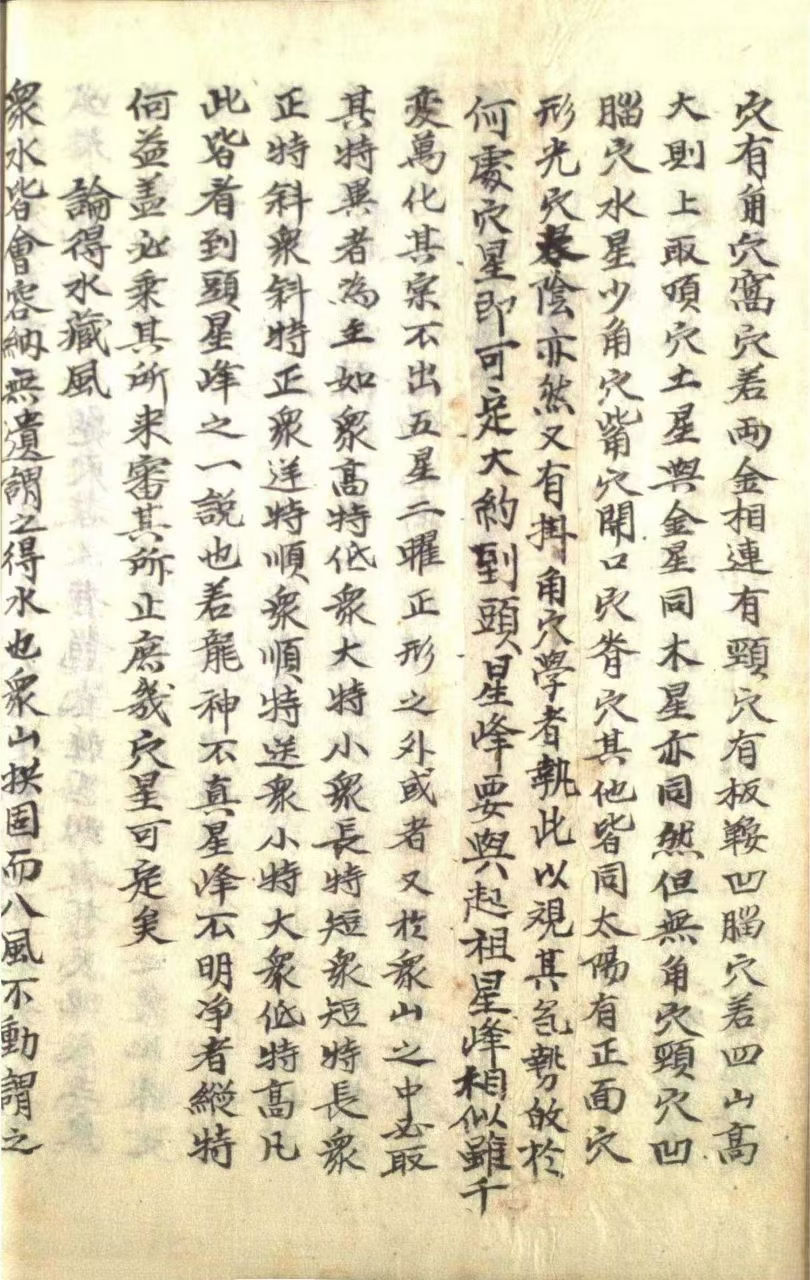 穴有角穴窩穴若兩金相連有頸穴有板鞍凹腦穴若四山高
大則上取頂穴土星與金星同木星亦同然但無角穴頸穴凹
腦穴水星少角穴觜穴開口穴脊穴其他皆同太陽有正面穴
形光穴太陰亦然又有掛角穴學者執此以觀其氣勢的於
何處穴星即可定大約到頭星峰要與起祖星峰相似雖千
変萬化其宗不出五星二曜正形之外或者又於衆山之中必取
其特異者為主如衆高特低衆大特小衆長特短衆短特長衆
正特斜衆斜特正衆逆特順衆順特逆衆小特大衆低特高凡
此皆看到頭星峰之一說也若龍神不真星峰不明净者縱特
何益盖必乘其所来審其所止庶幾穴星可定矣
論得水藏風
衆水皆會容納無遺謂之得水也衆山拱固而八風不動謂之